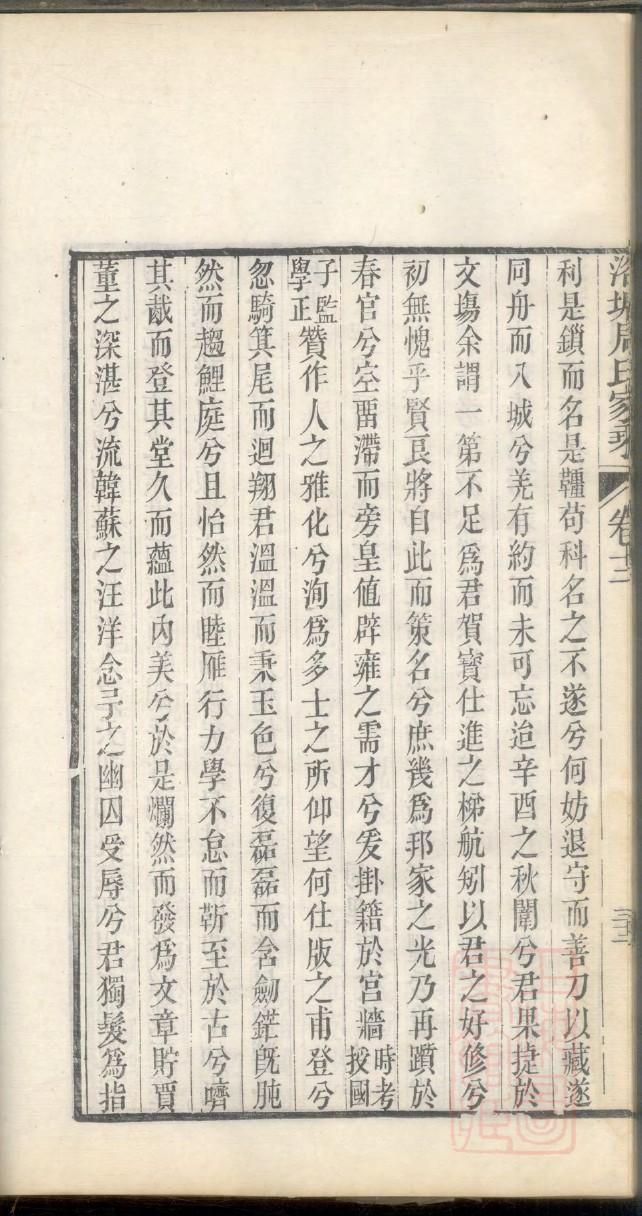 洛城周氏家乘 卷十二
利是鎖而名是韁苟科名之不遂兮何妨退守而善刀以藏遂
同舟而入城兮羌有約而未可忘迨辛酉之秋闈兮君果㨗於
文塲余謂一第不足爲君賀寳仕進之梯航矧以君之好修兮
初無愧乎賢良將自此而策名兮庶幾爲邦家之光乃再躓於
春官兮空畱滯而旁皇値辟雍之需才兮爰掛籍於宫牆時考授國
子監學正贊作人之雅化兮洵爲多士之所仰望何仕版之甫登兮
忽騎箕尾而迴翔君温温而秉玉色兮復磊磊而含劒鋩旣肫
然而趨鯉庭兮且怡然而睦雁行力學不怠而靳至於古兮嚌
其胾而登其堂久而蘊此内美兮於是爛然而發爲文章貯賈
董之深湛兮流韓蘇之汪洋念予之幽囚受辱兮君獨髮爲指